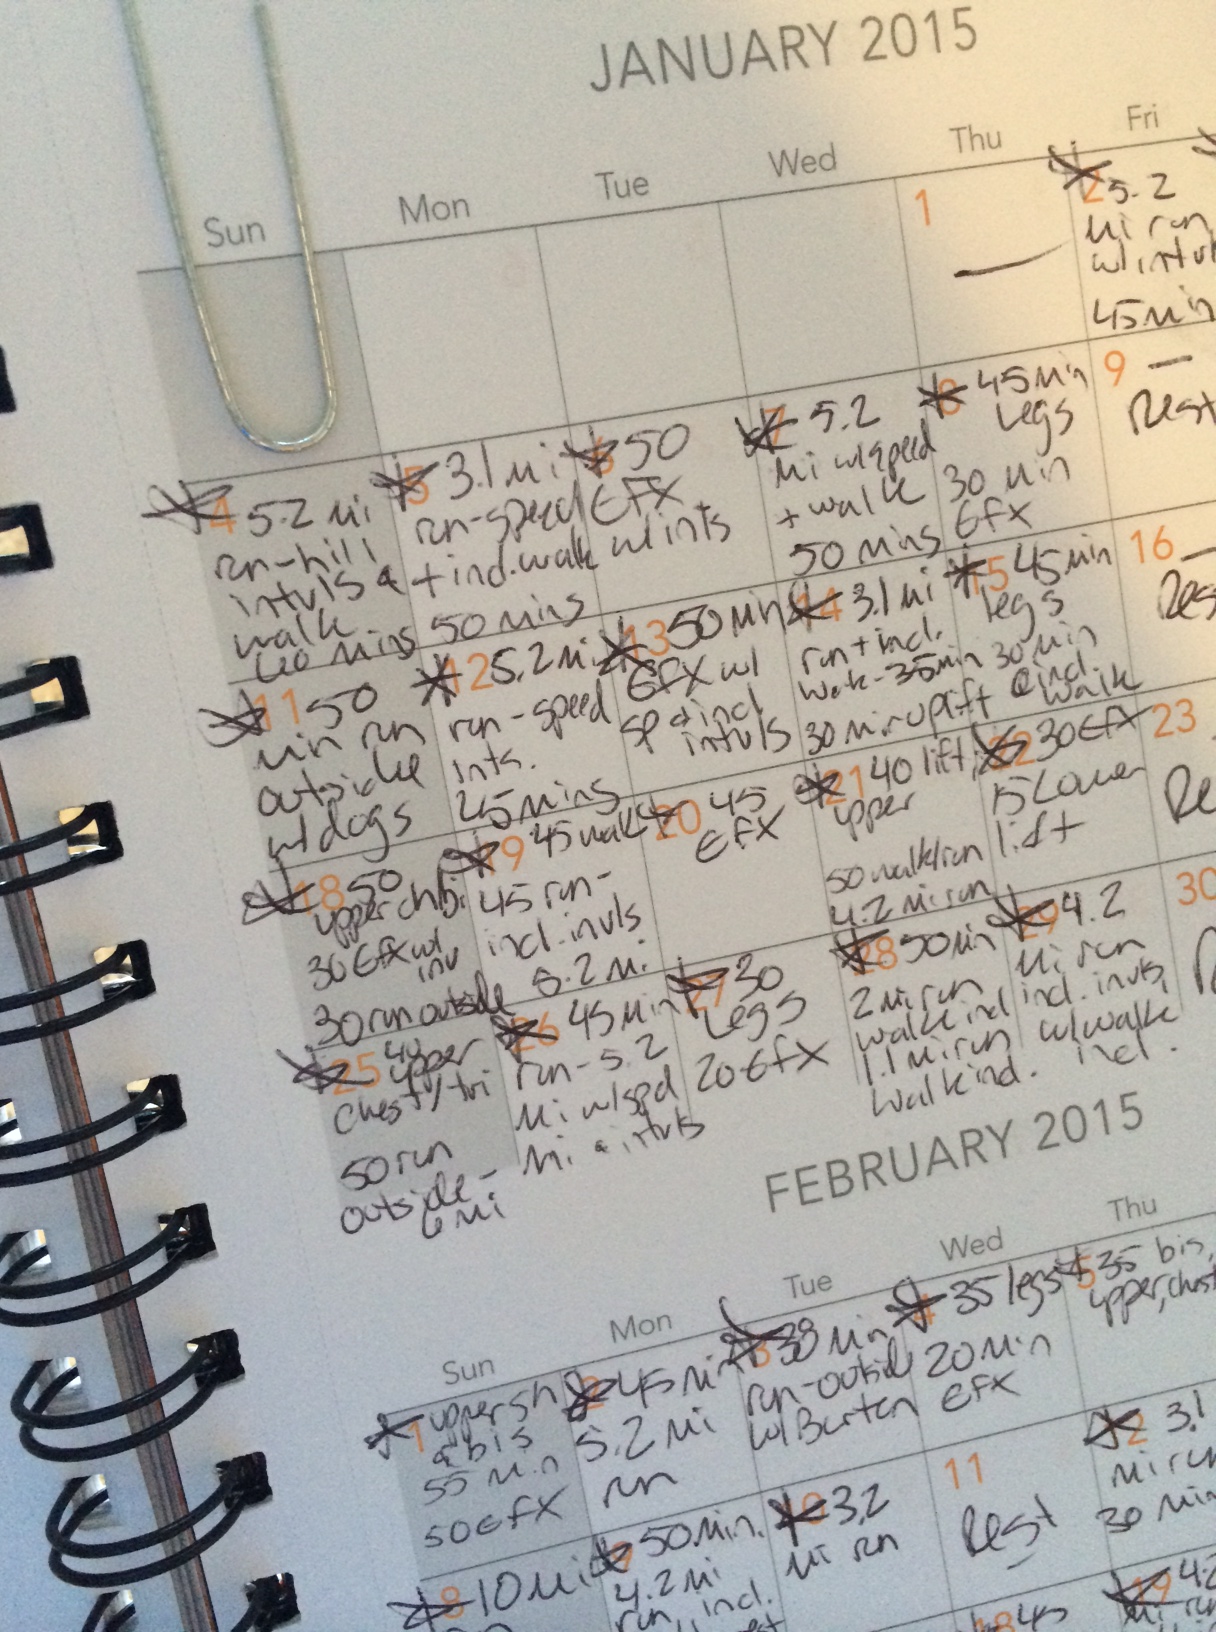 JANUARY 2015
Sun Mon Tue Wed Thu Fri
1
2 5.2
mi run
w/intvl
45 min
4 5.2 mi
run-hill
intvls &
walk
60 mins
5 3.1 mi
run-speed
+ incl. walk
50 mins
6 50
EFX
w/ints
7 5.2
mi w/speed
+ walk
50 mins
8 45 min
legs
30 min
EFX
9 —
Rest
11 50
min run
outside
w/dogs
12 5.2 mi
run-speed
ints.
45 mins
13 50 min
EFX w/
sp & incl
intvls
14 3.1 mi
run + incl.
walk-35min
30 min uplift
15 45 min
legs
30 min
@ incl
walk
16 —
Res
18 50
upper ch/bi
30 EFX w/
inv
30 run outside
19 45 walk
45 run-
incl. invls
5.2 mi
20 45
EFX
21 40 lift,
upper
50 walk/run
4.2 mi run
22 30 EFX
15 Lower
lift
23
Re
25 40
upper
chest/tri
50 run
outside-
6 mi
26 45 min
run-5.2
mi w/spd
mi & intvls
27 30
Legs
20 EFX
28 50 min
2 mi run
walk incl
1.1 mi run
walk incl.
29 4.2
mi run
incl. invts,
w/walk
incl.
30
FEBRUARY 2015
Sun Mon Tue Wed Thu
1 upper sh
& bis
55 min
50 EFX
2 45 min
5.2 mi
run
3 38 min
run-outside
w/Burton
4 35 legs
20 min
EFX
5 35 bis,
upper, chest
8 10 mi
9 50 min.
4.2 mi
run, incl.
10 3.2
mi run
11
Rest
12 3.1
mi run
30 min
18 45
19 4.2
mi run